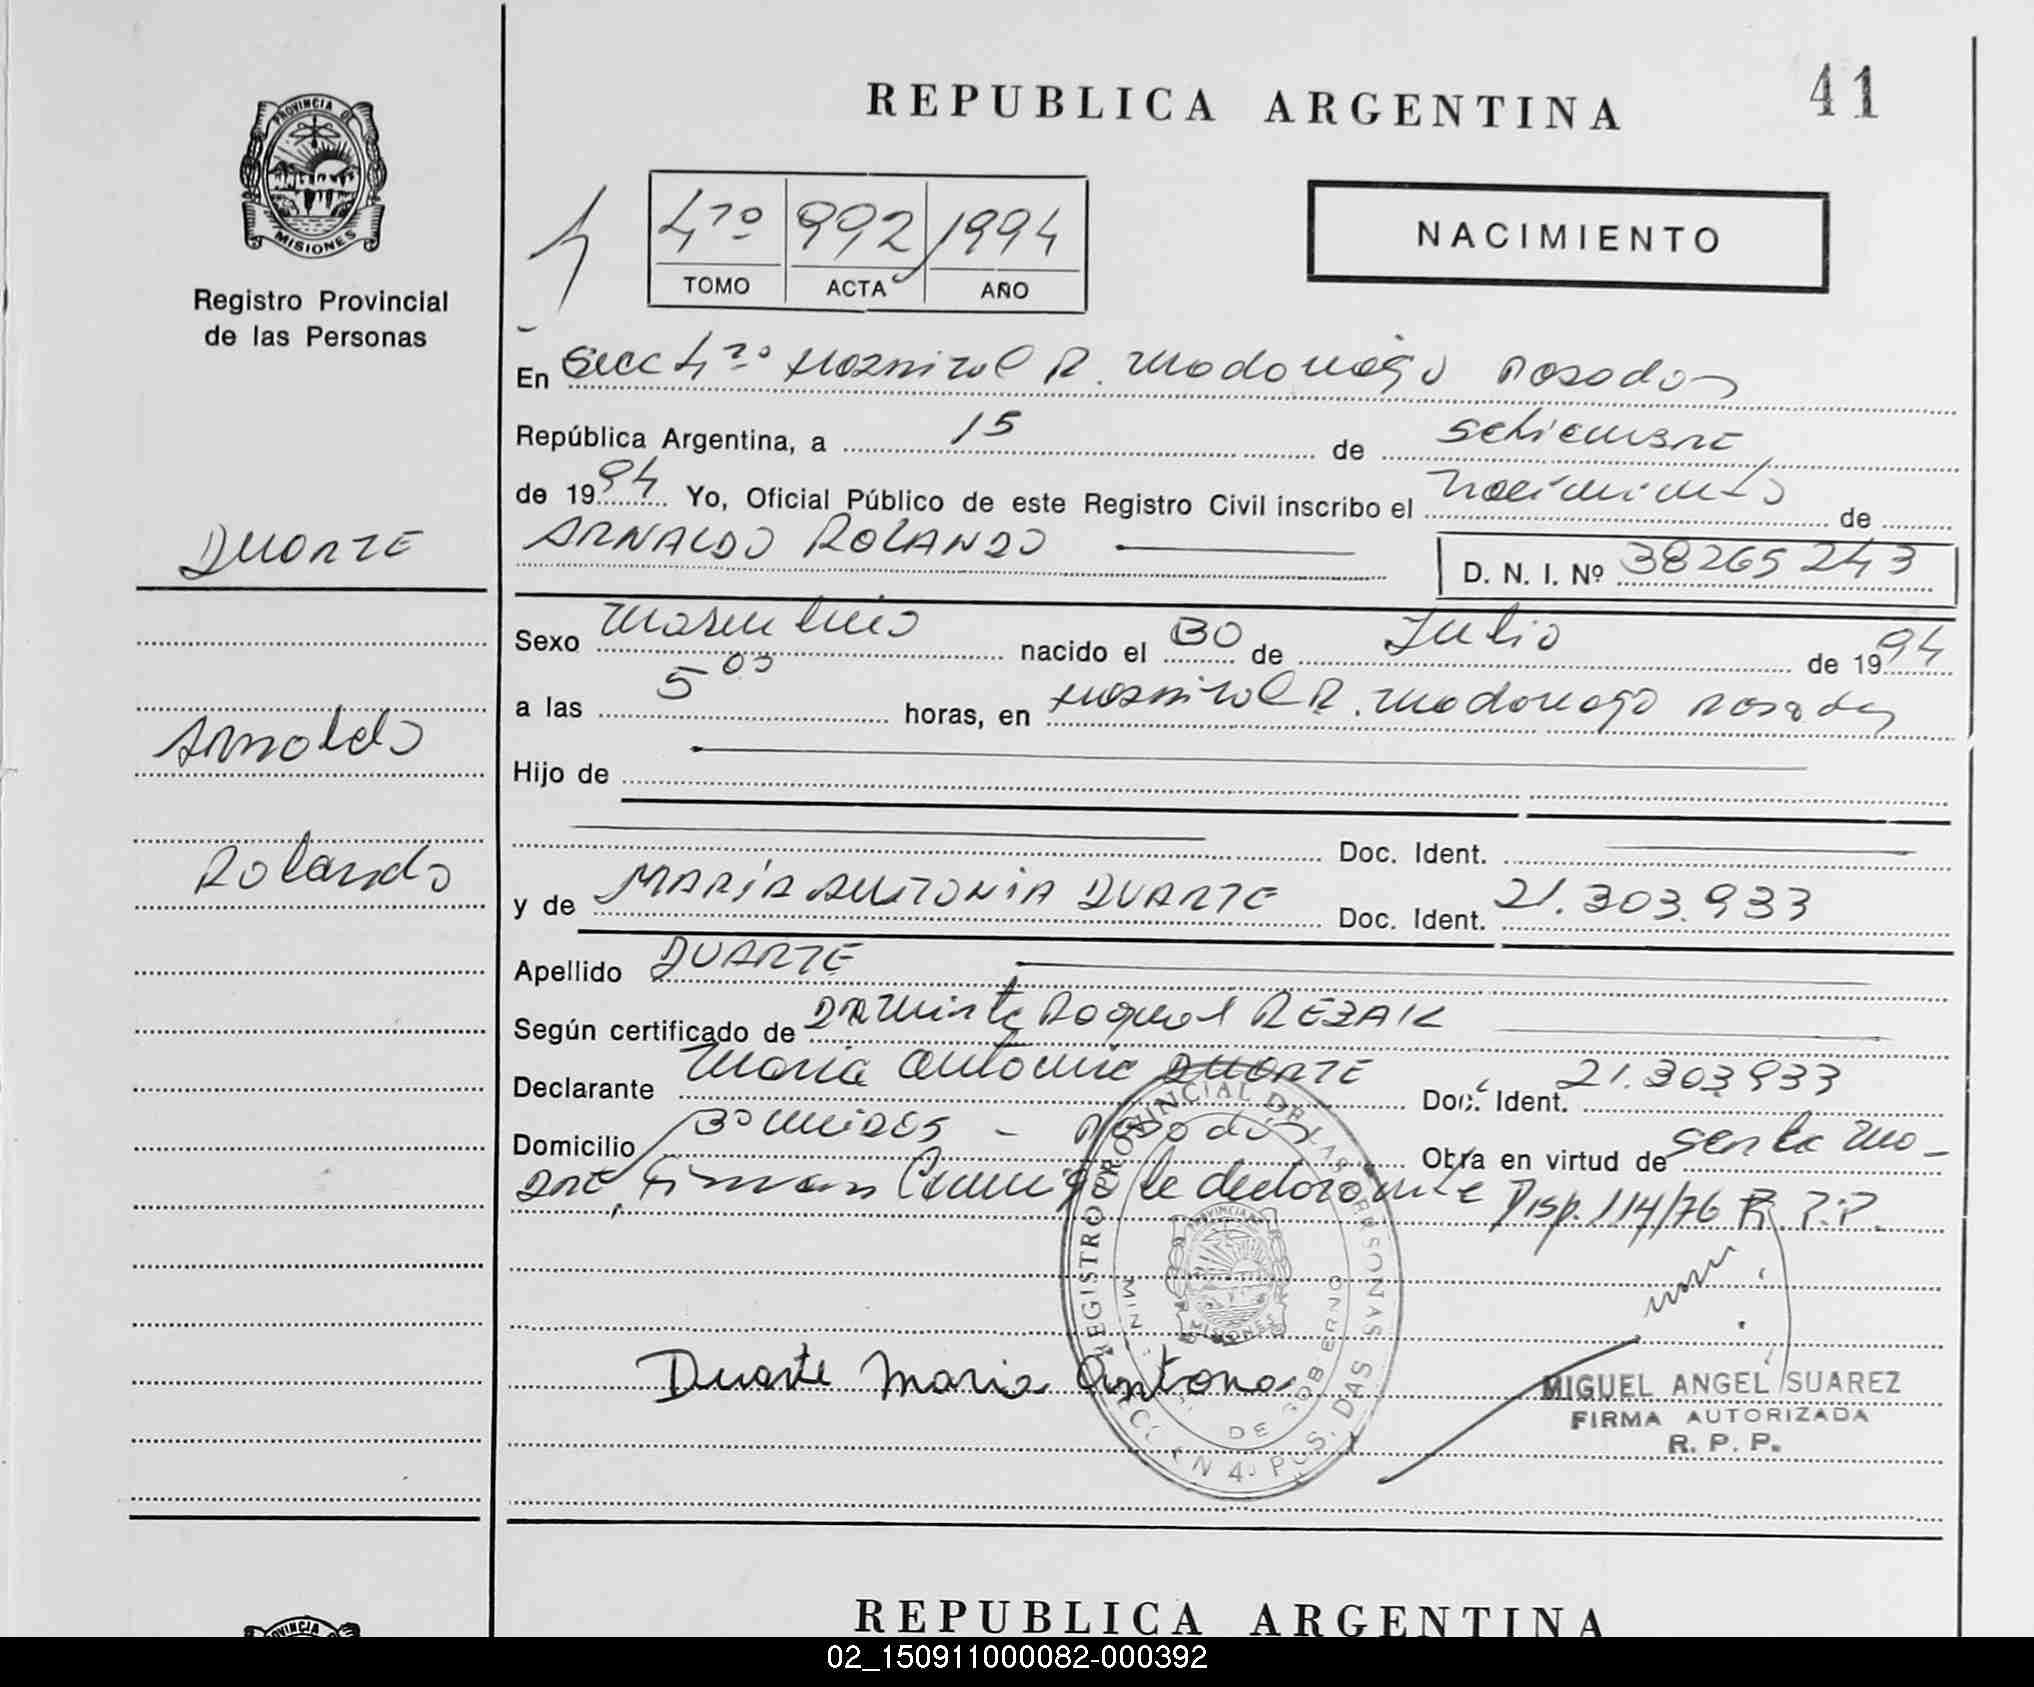 41
REPUBLICA ARGENTINA
PROVINCIA DE
MISIONES
Registro Provincial
de las Personas
4to 992 1994
TOMO ACTA AÑO
NACIMIENTO
En Secc 4ta Hospital R. Madariaga Posadas
República Argentina, a 15 de Setiembre
de 1994 Yo, Oficial Público de este Registro Civil inscribo el nacimiento de
DUARTE
ARNALDO ROLANDO D. N. I. Nº 38265243
Sexo masculino nacido el 30 de Julio de 1994
Arnaldo
a las 5 00 horas, en Hospital R. Madariaga Posadas
Hijo de
Doc. Ident.
Rolando
y de MARÍA ANTONIA DUARTE Doc. Ident. 21.303.933
Apellido DUARTE
Según certificado de Raquel
Declarante María Antonia DUARTE Doc. Ident. 21.303.933
Domicilio Posadas Obra en virtud de ser la ma-
dre, firman conmigo la declarante Disp. 114/76 R.P.P.
REGISTRO PROVINCIAL DE LAS PERSONAS
MISIONES
Duarte Maria Antona
MIGUEL ANGEL SUAREZ
FIRMA AUTORIZADA
R. P. P.
REPUBLICA ARGENTINA
02_150911000082-000392